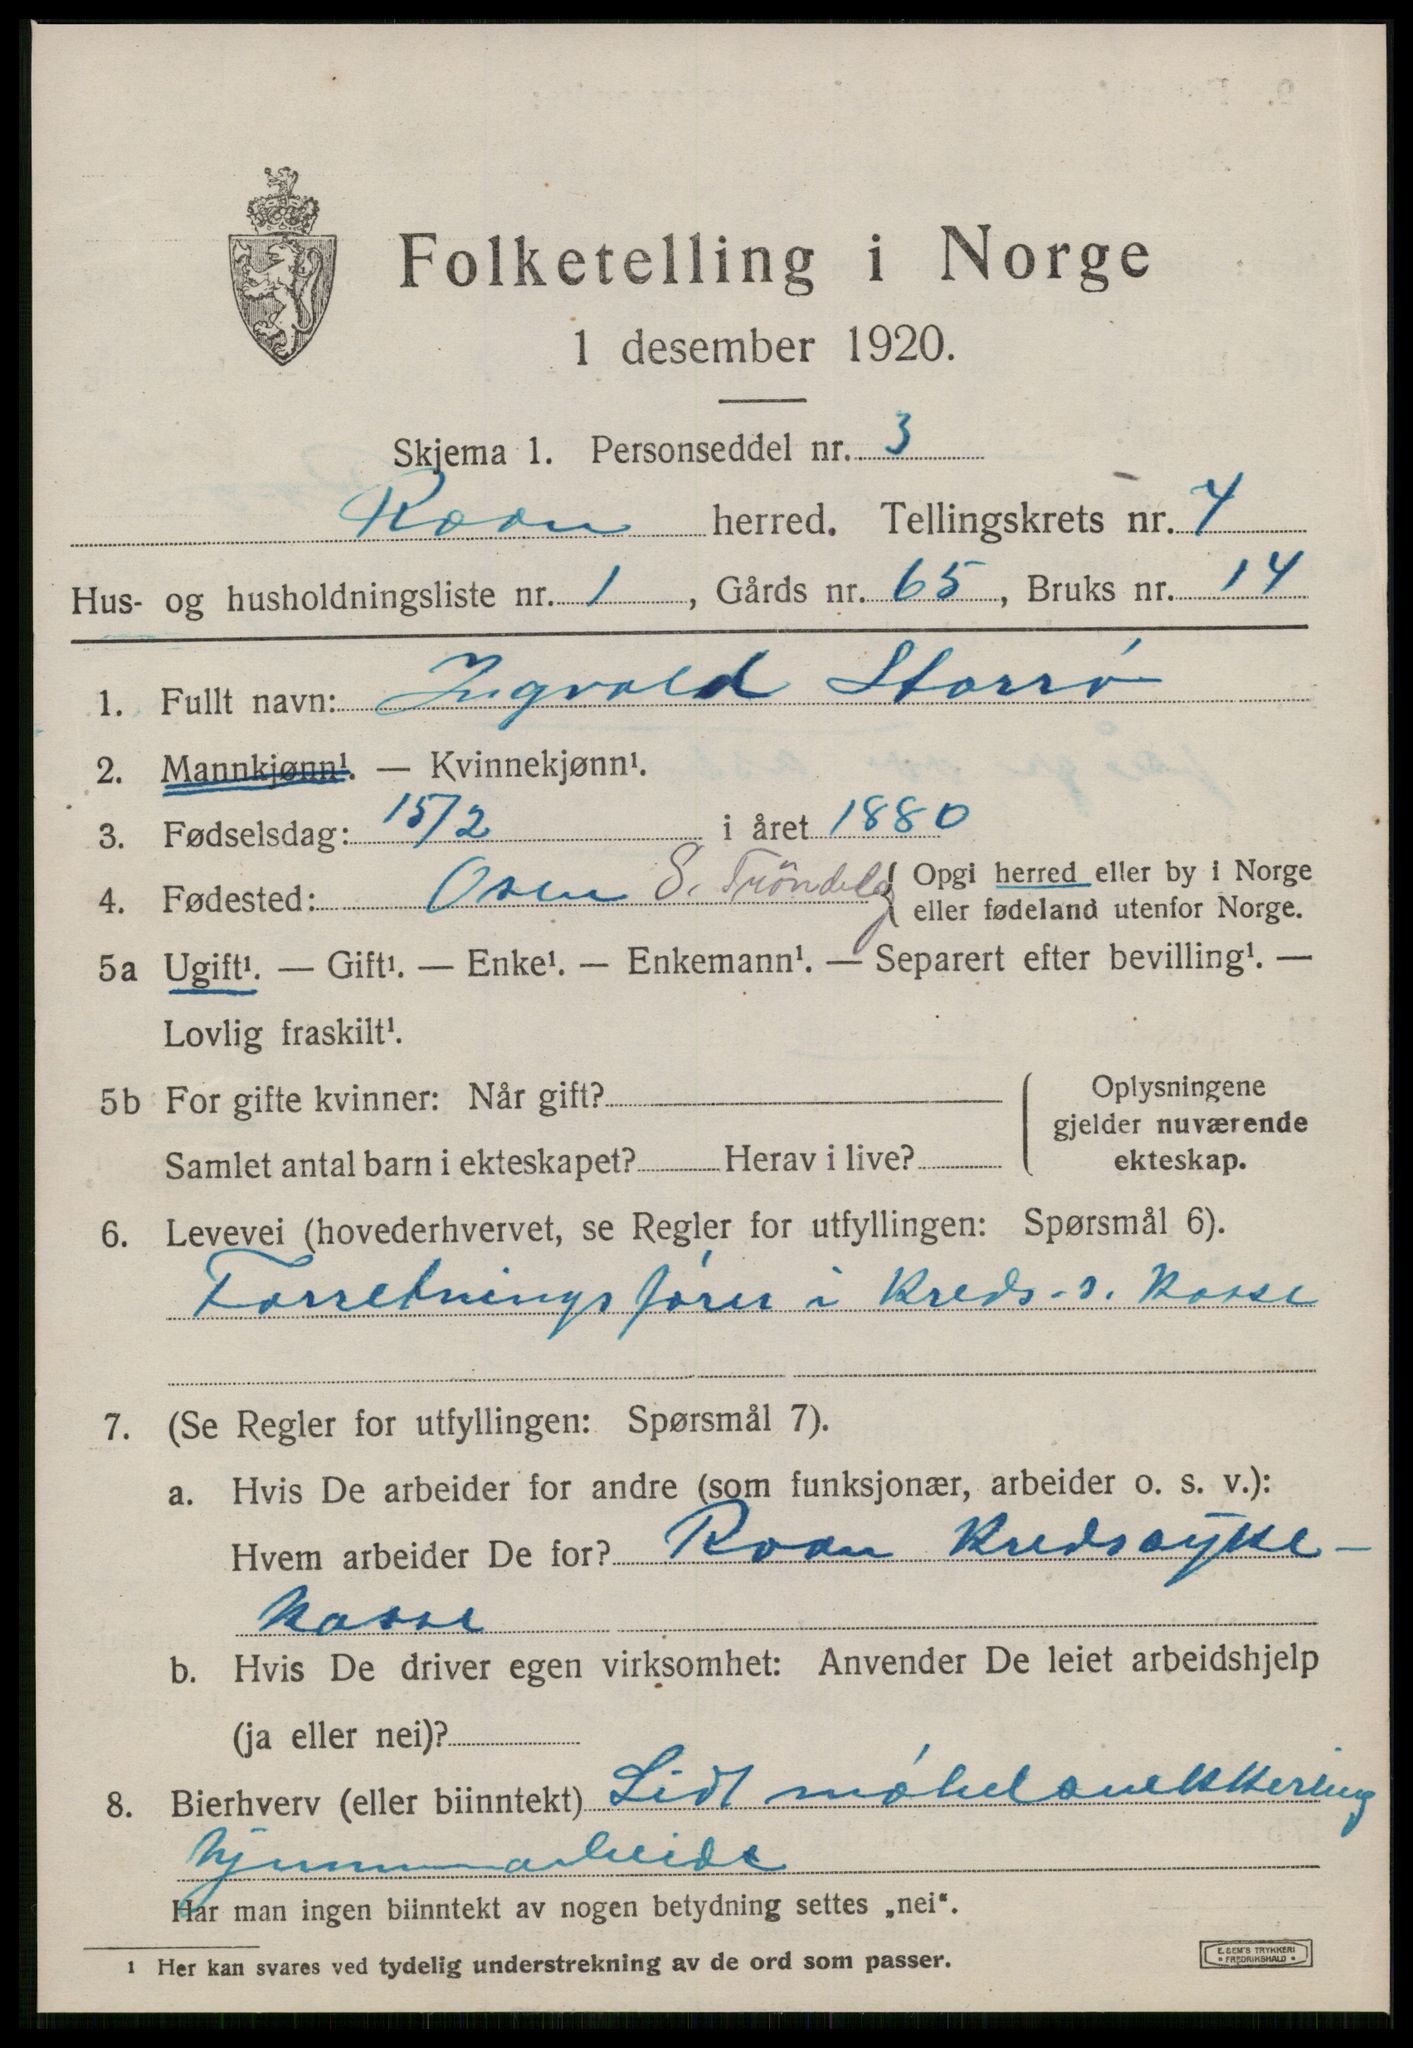 Folketelling i Norge
1 desember 1920.
Skjema 1. Personseddel nr. 3
Roan herred. Tellingskrets nr. 7
Hus- og husholdningsliste nr. 1, Gårds nr. 65, Bruks nr. 14
1. Fullt navn: Ingvald Storrø
2. Mannkjønn¹. — Kvinnekjønn¹.
3. Fødselsdag: 15/2 i året 1880
4. Fødested: Osen S. Tröndelag { Opgi herred eller by i Norge
eller fødeland utenfor Norge.
5a Ugift¹. — Gift¹. — Enke¹. — Enkemann¹. — Separert efter bevilling¹. —
Lovlig fraskilt¹.
5b For gifte kvinner: Når gift?
Samlet antal barn i ekteskapet? Herav i live?
Oplysningene
gjelder nuværende
ekteskap.
6. Levevei (hovederhvervet, se Regler for utfyllingen: Spørsmål 6).
Forretningsfører i Kreds-s. Kasse
7. (Se Regler for utfyllingen: Spørsmål 7).
a. Hvis De arbeider for andre (som funksjonær, arbeider o. s. v.):
Hvem arbeider De for? Roan Kredssyke-
kasse
b. Hvis De driver egen virksomhet: Anvender De leiet arbeidshjelp
(ja eller nei)?
8. Bierhverv (eller biinntekt) Lidt møbelsnekkering
hjemmearbeide
Har man ingen biinntekt av nogen betydning settes „nei“.
1 Her kan svares ved tydelig understrekning av de ord som passer.
E. SEM'S TRYKKERI
• FREDRIKSHALD •